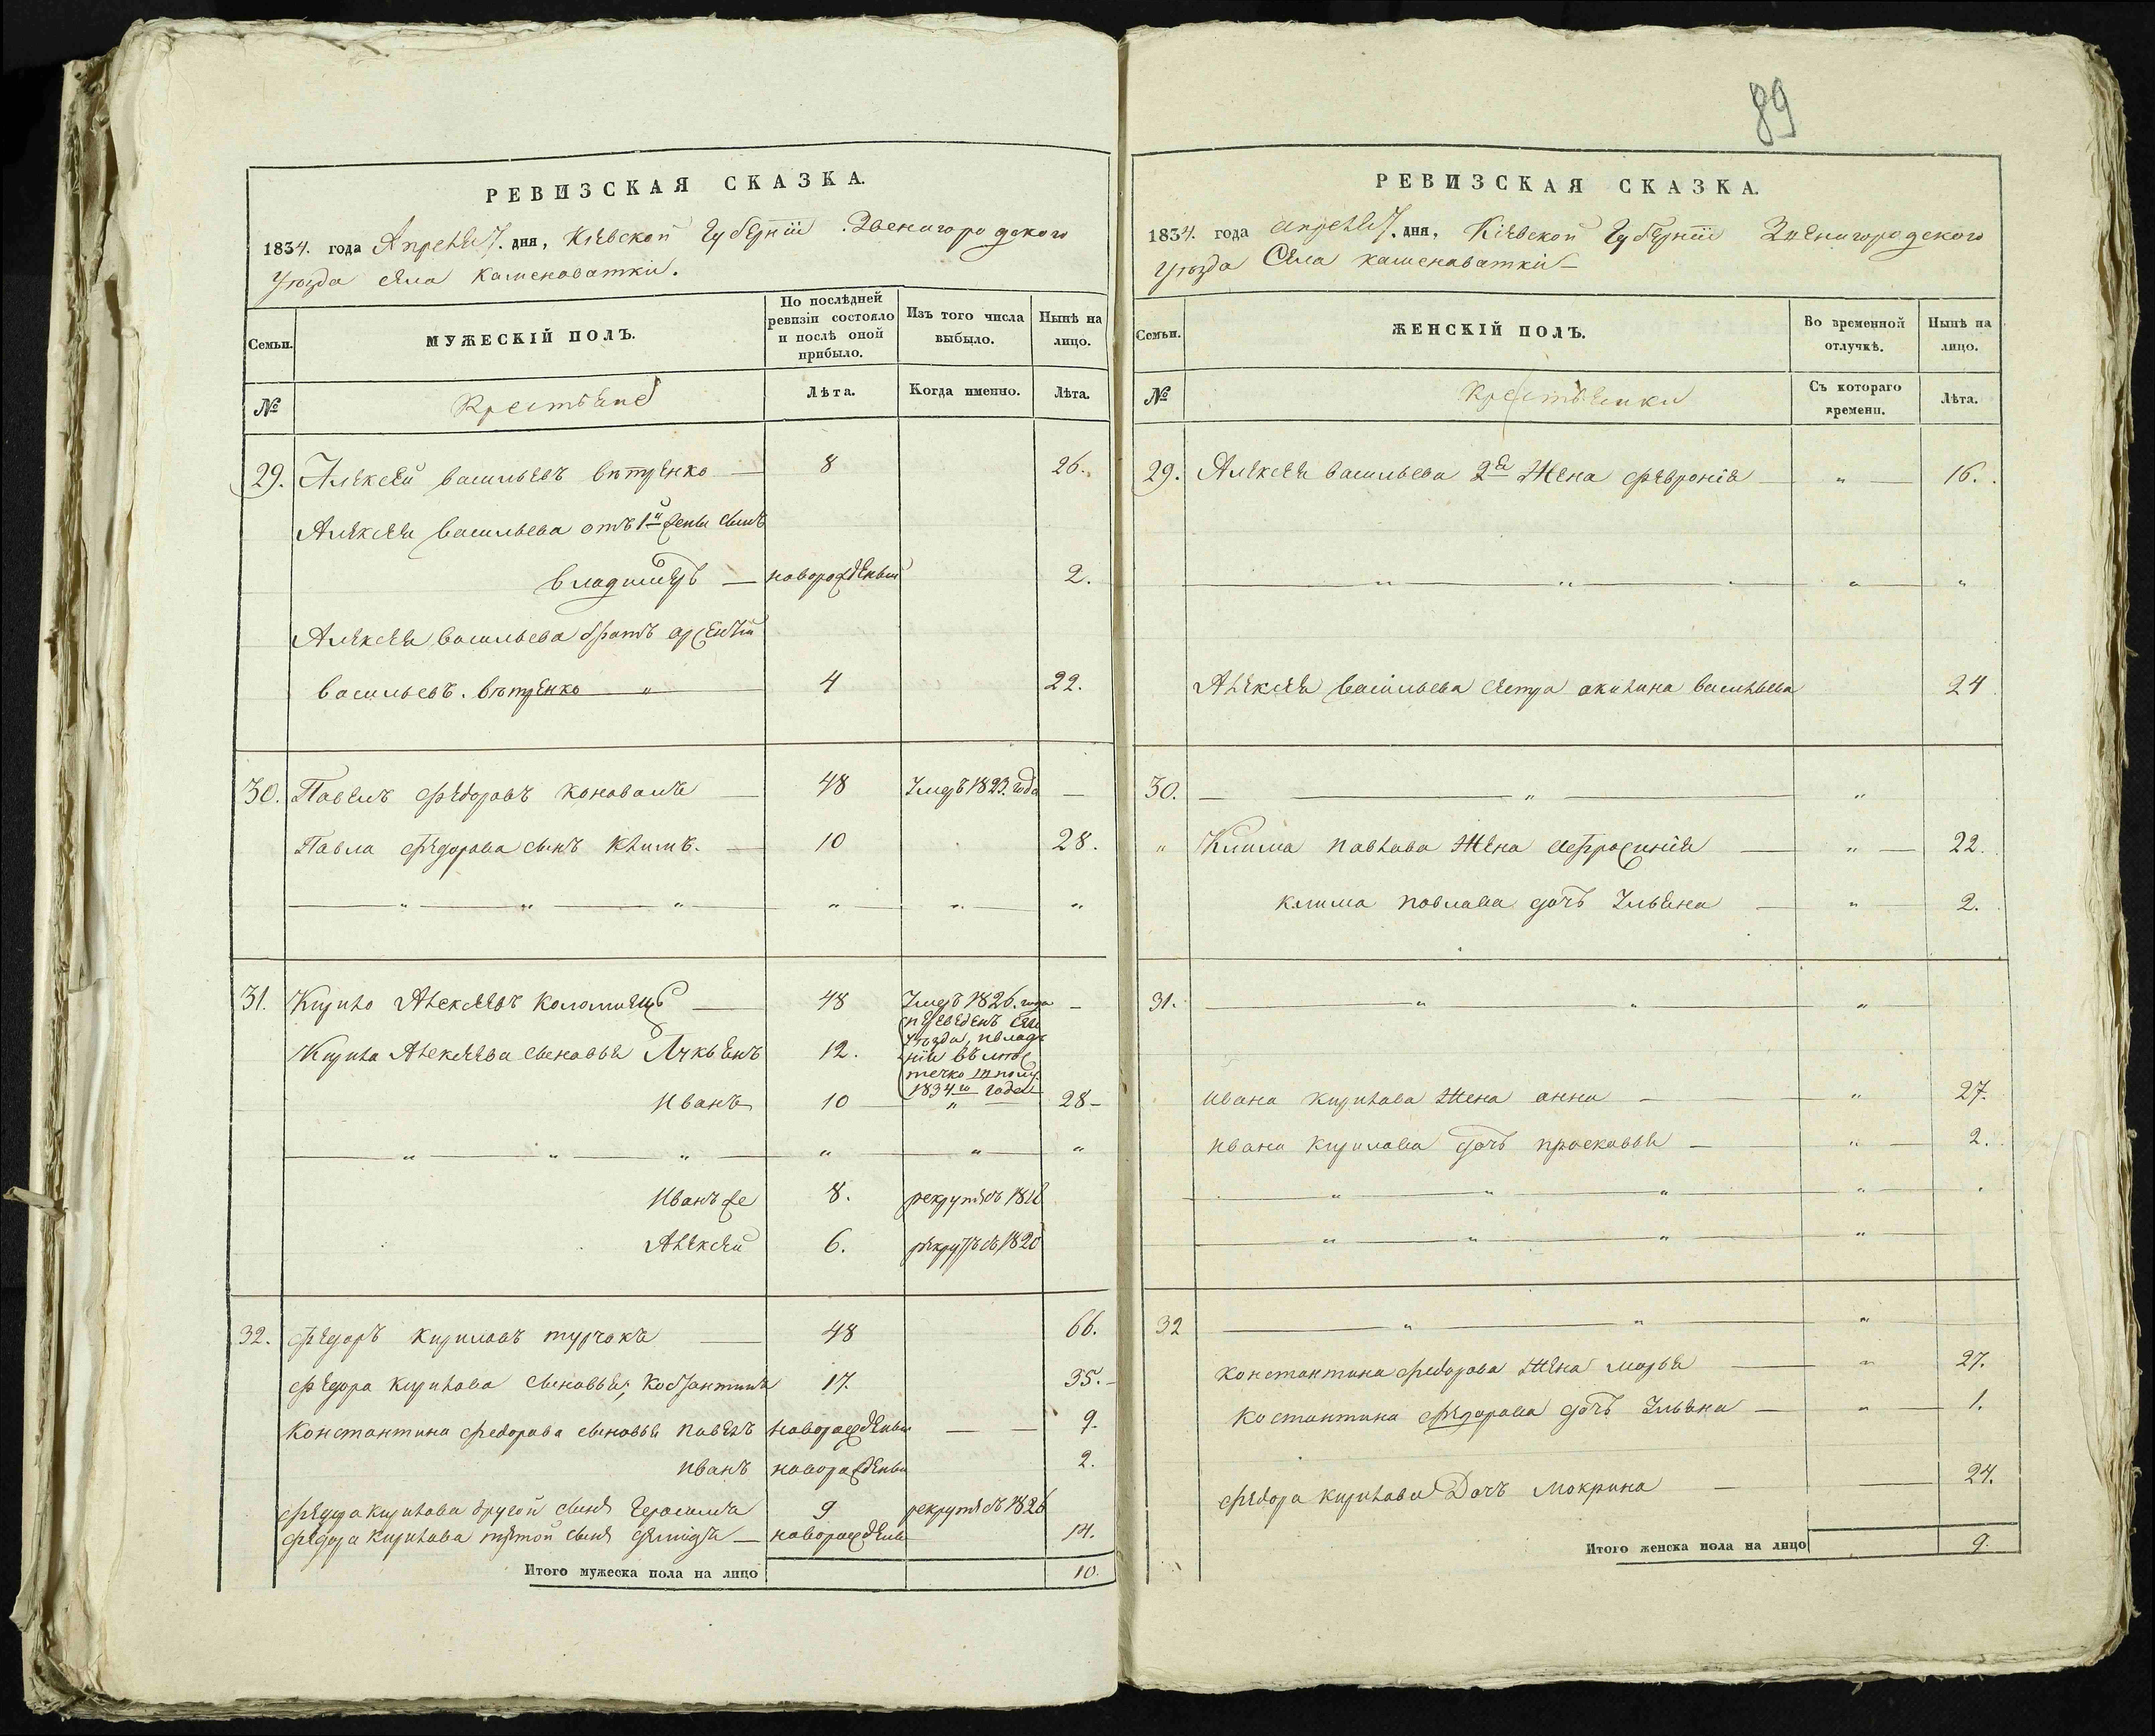 РЕВИЗСКАЯ СКАЗКА.
1834. года Апреля 7. дня, Кіевской Губерніи Звенигородского
Уезда села Каменоватки.
Семьи.
МУЖЕСКІЙ ПОЛЪ.
По послѣдней ревизіи состояло и послѣ оной прибыло.
Изъ того числа выбыло.
Нынѣ на лицо.
№
Крестьяне
Лѣта.
Когда именно.
Лѣта.
29. Алексей васильевъ ветренко — 8 26.
Алексея васильева отъ 1й жены сынъ
владимеръ — новорожденый 2.
Алексея васильева братъ арсений
васильевъ. ветренко " 4 22.
30. Павелъ Федоровъ коновалъ — 48 Умеръ 1823. года —
Павла Федорова сынъ климъ. — 10 28.
" " " " " "
31. Кирило Алексеевъ коломиецъ — 48 Умеръ 1826. года —
Кирила Алексеева сыновья Лукьянъ 12. переведенъ
1834го года
Иванъ 10 " 28 —
" " " " " "
Иванъ же 8. рекрутъ съ 1816
Алексей 6. рекрутъ съ 1820
32. Федоръ кириловъ турчакъ — 48 66.
Федора кирилова сыновья; Костянтинъ 17. 35. —
Константина федорова сыновья павелъ новорожденый — — 9.
иванъ новорожденый 2.
Федора кирилова другой сынъ Герасимъ 9 рекрутъ съ 1826
Федора кирилова третой сынъ демидъ — новорожденый 14.
Итого мужеска пола на лицо 10.
89
РЕВИЗСКАЯ СКАЗКА.
1834. года апреля 7. дня, Кіевской Губерніи Звенигородского
Уезда Села каменоватки —
Семьи.
ЖЕНСКІЙ ПОЛЪ.
Во временной отлучкѣ.
Нынѣ на лицо.
№
Крестьянки
Съ котораго времени.
Лѣта.
29. Алексея васильева 2я Жена февронія — " — 16.
" " " "
Алексея васильева сестра акилина васильева 24
30. — " — "
" Клима павлова Жена ефросинія — " — 22.
клима павлова дочъ Ульяна — " — 2.
31. " " "
ивана кирилова Жена анна — " 27.
ивана кирилова дочъ прасковья — " — 2.
" " " "
" " " "
32 " " "
константина федорова Жена марья — " 27.
костантина федорова дочъ Ульяна — " — 1.
федора кирилова Дочъ мокрина — — 24.
Итого женска пола на лицо 9.